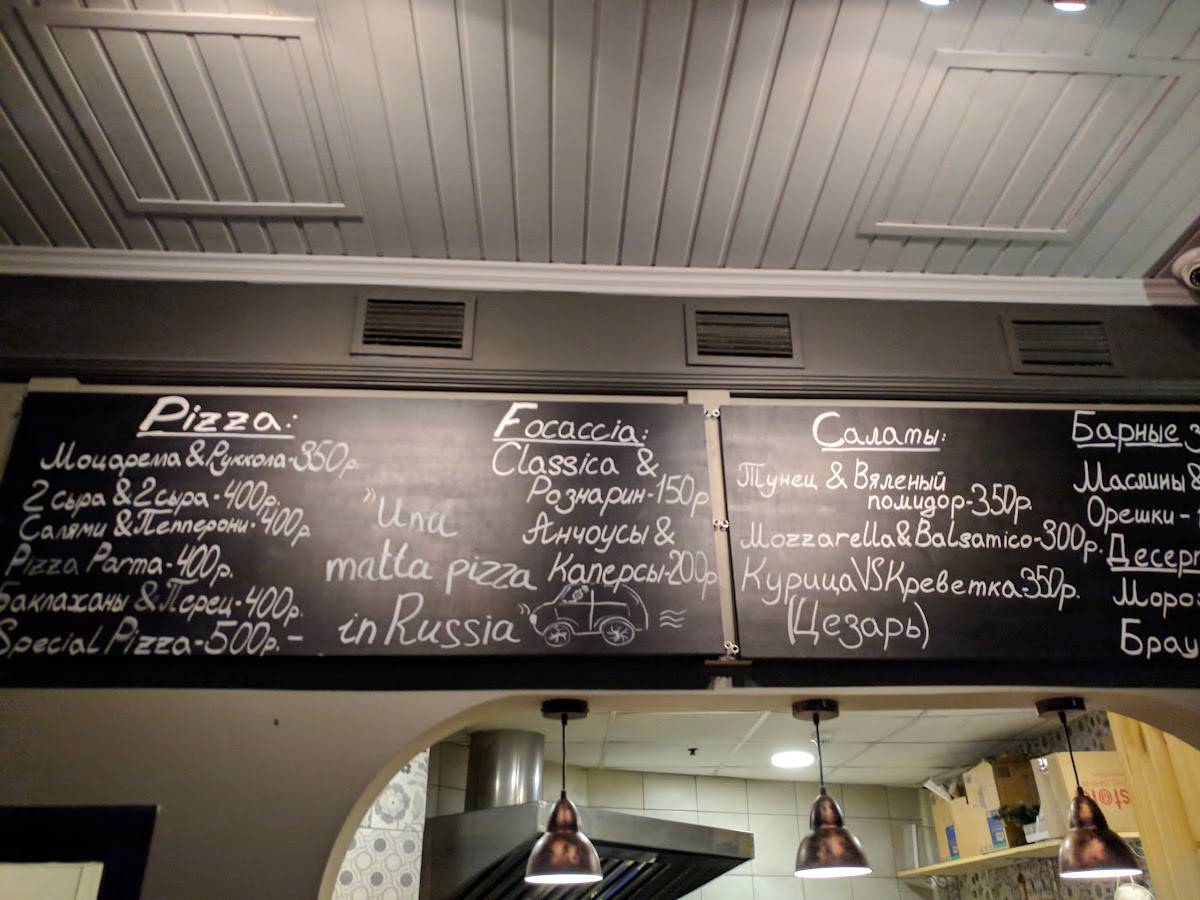 Pizza:
Моцарелла & Руккола-350р.
2 сыра & 2 сыра-400р.
Салями & Пепперони-400р.
Pizza Parma-400р.
Баклажаны & Перец-400р.
Special Pizza-500р.-
"Una
matta pizza
in Russia"
Focaccia:
Classica &
Рознарин-150р
Анчоусы &
Каперсы-200р
Салаты:
Тунец & Вяленый
помидор-350р.
Mozzarella & Balsamico-300р.
Курица VS Креветка-350р.
(Цезарь)
Барные
Маслины &
Орешки-
Десерт
Морож
Брау